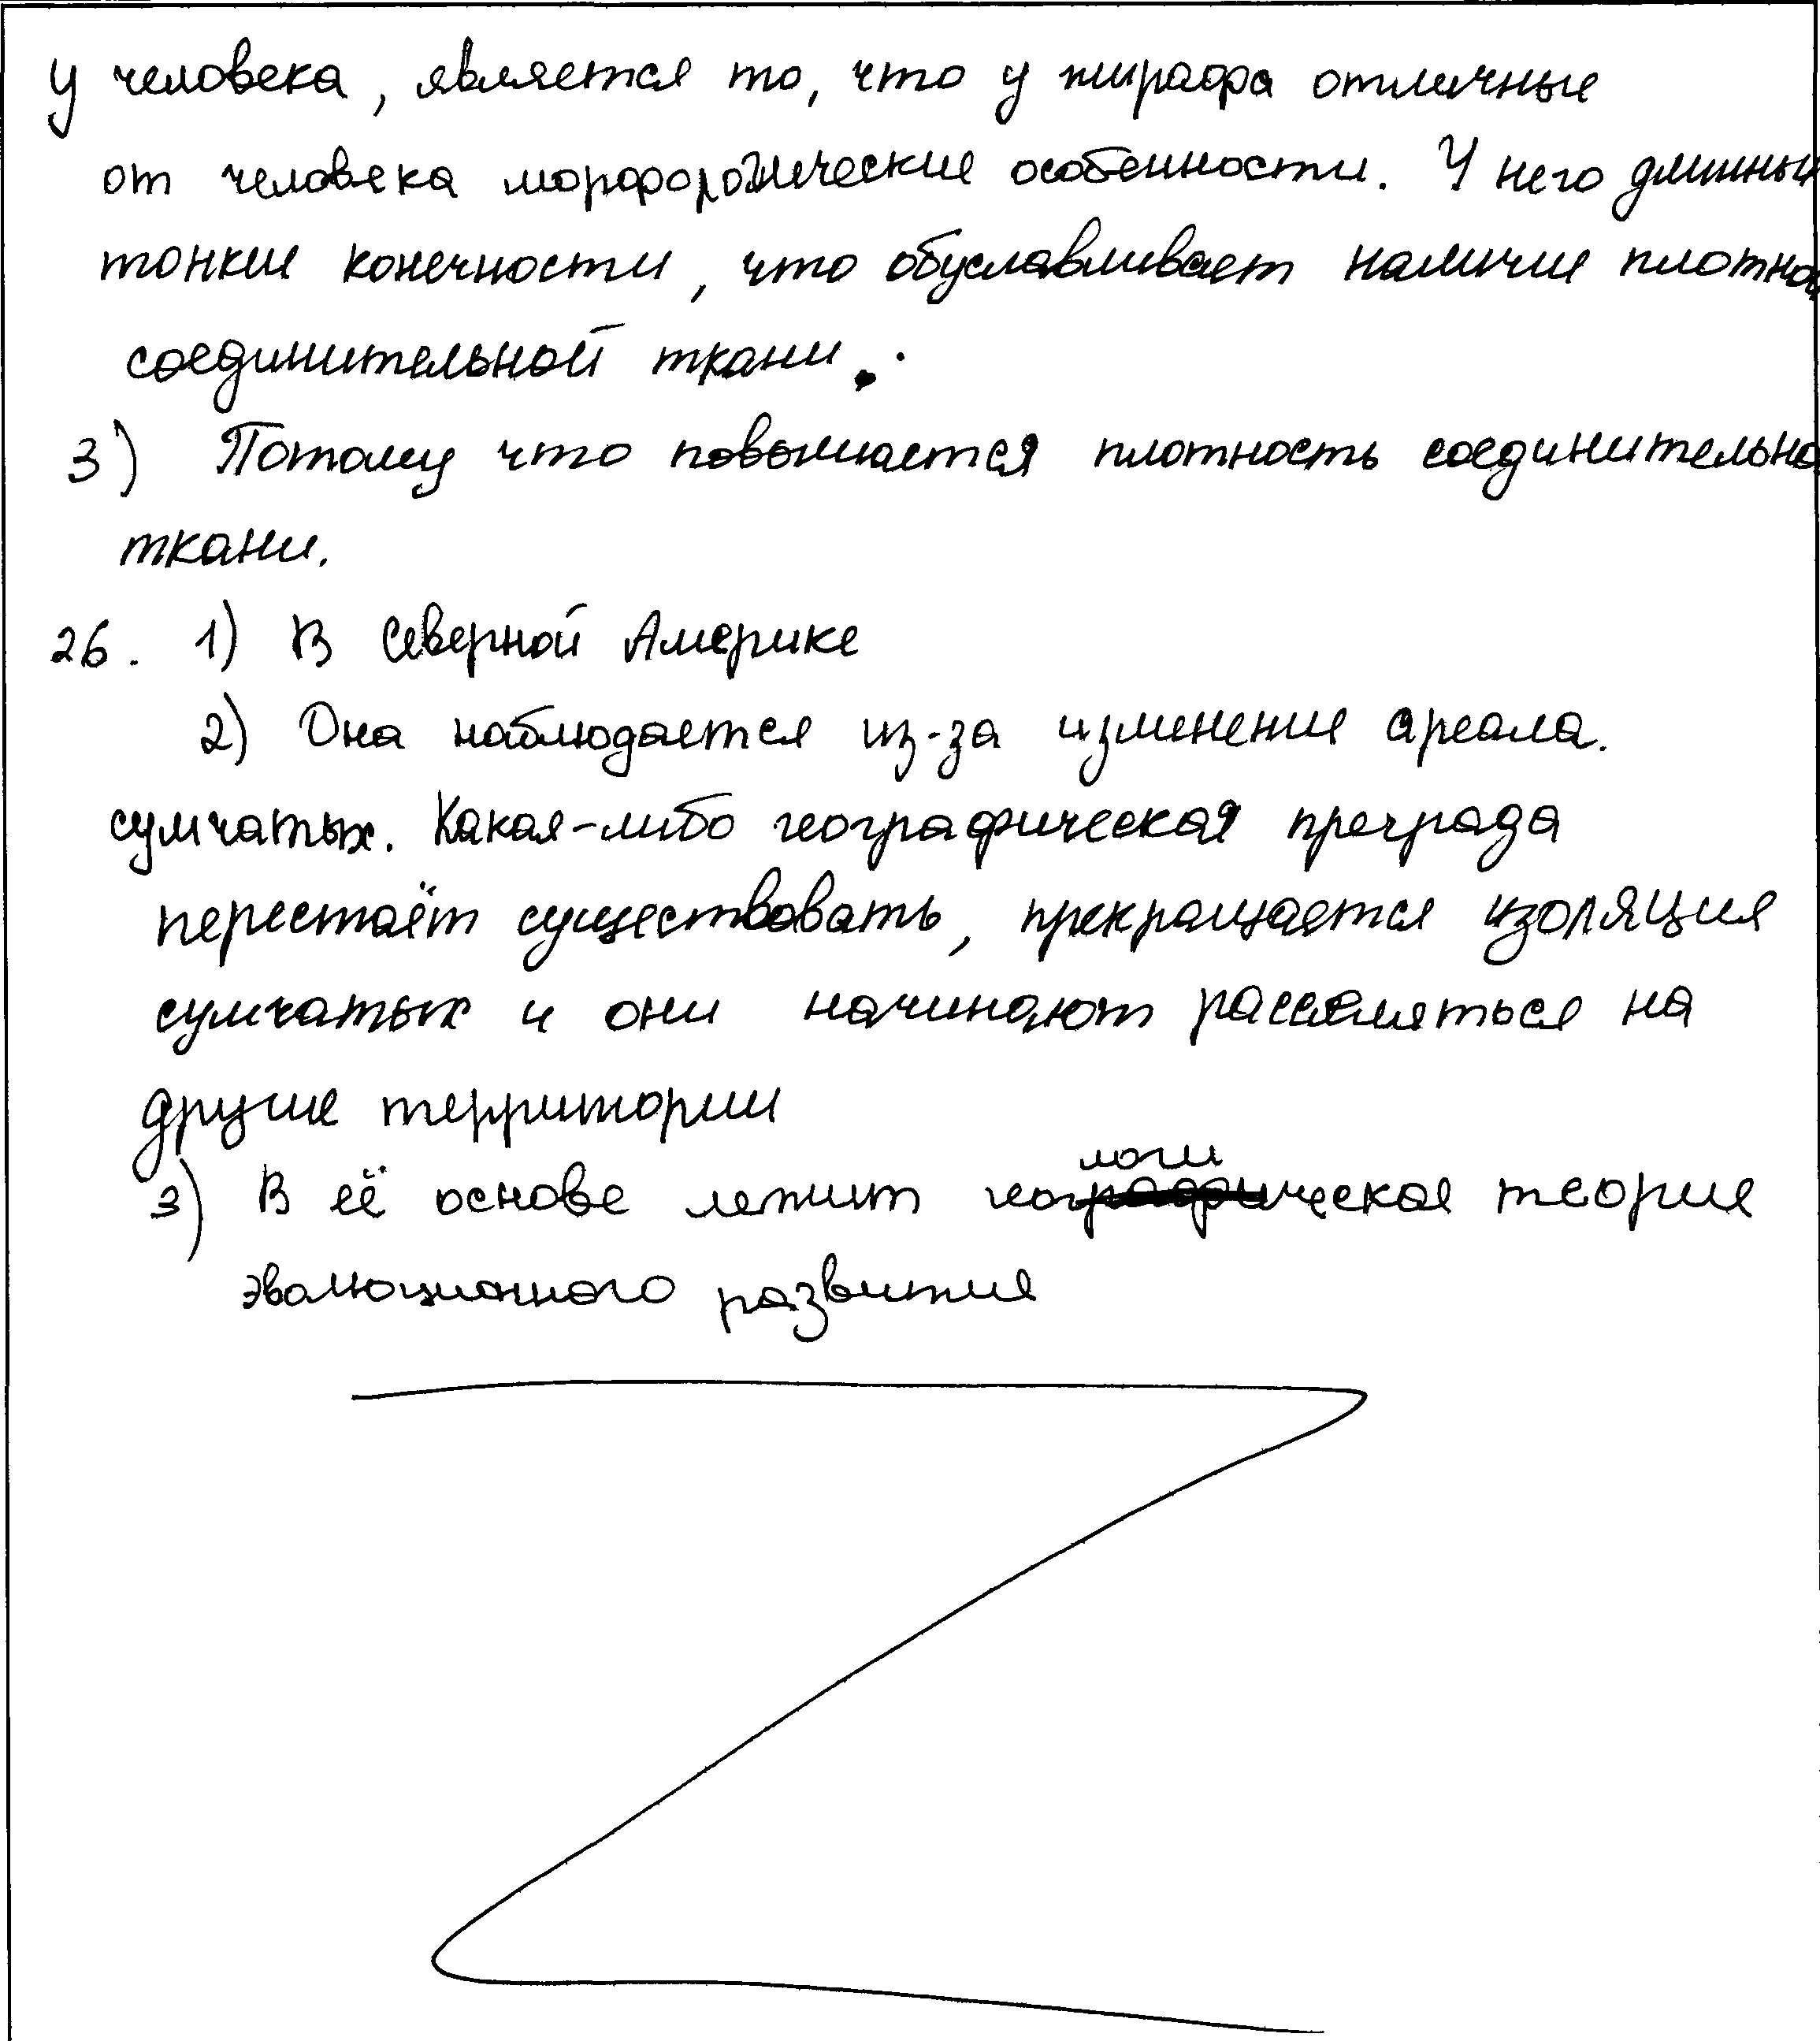 у человека, является то, что у жирафа отличные
от человека морфорогические особенности. У него длинны
тонкие конечности, что обуславливает наличие плотно
соединительной ткани.
3) Потому что повышается плотность соединительно
ткани.
26. 1) В Северной Америке
2) Она наблюдается из-за изменение ареала.
сумчатых. Какая-либо географическая преграда
перестаёт существовать, прекращается изоляция
сумчатых и они начинают расселяться на
другие территории
3) В её основе лежит геологическая теория
эволюционного развития